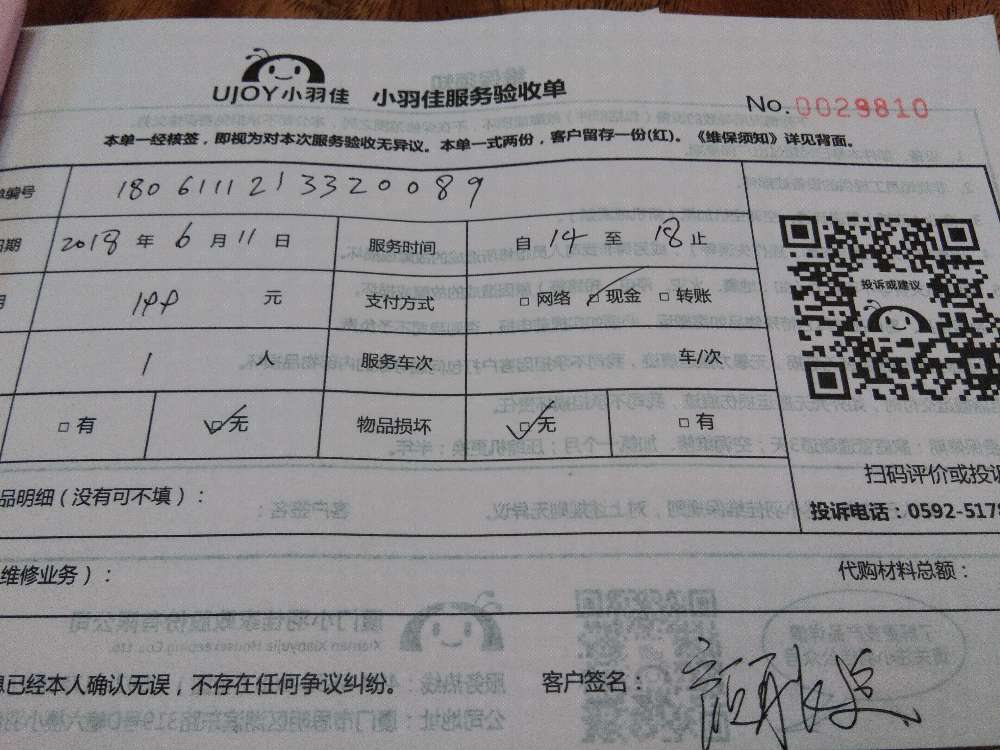 UJOY小羽佳 小羽佳服务验收单
No.0029810
本单一经核签，即视为对本次服务验收无异议。本单一式两份，客户留存一份(红)。《维保须知》详见背面。
编号 180611121332 0089
日期 2018 年 6 月 11 日 服务时间 自 14 至 18 止
元 支付方式 □ 网络 □ 现金 □ 转账
投诉或建议
1 人 服务车次 车/次
□ 有 □ 无 物品损坏 □ 无 □ 有
品明细(没有可不填)：
扫码评价或投诉
投诉电话：0592-5178
维修业务)： 代购材料总额：
息已经本人确认无误，不存在任何争议纠纷。 客户签名：